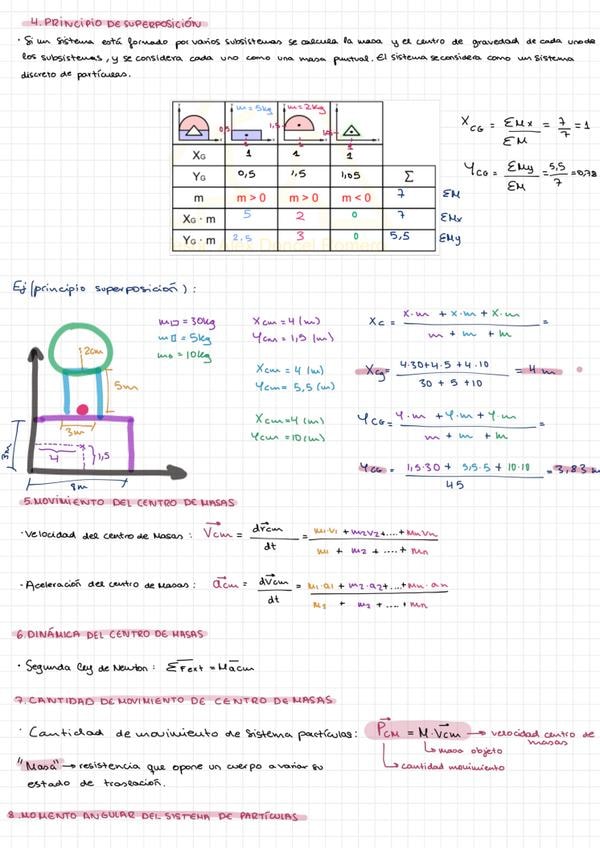 4. PRINCIPIO DE SUPERPOSICIÓN
· Si un sistema está formado por varios subsistemas se calcula la masa y el centro de gravedad de cada uno de
los subsistemas, y se considera cada uno como una masa puntual. El sistema se considera como un sistema
discreto de partículas.
m=5kg m=2kg
0,5 1,5
XG 1 1 1
YG 0,5 1,5 1,05 Σ
m m > 0 m > 0 m < 0 7 ΣM
XG · m 5 2 0 7 ΣMx
YG · m 2,5 3 0 5,5 ΣMy
XCG = ΣMx / ΣM = 7/7 = 1
YCG = ΣMy / ΣM = 5,5/7 = 0,78
Ej (principio superposición) :
m□ = 30kg
m▯ = 5kg
mo = 10kg
Xcm = 4 (m)
Ycm = 1,5 (m)
Xcm = 4 (m)
Ycm = 5,5 (m)
Xcm=4 (m)
Ycm = 10 (m)
2cm
5m
3m
3m
4
1,5
8m
Xc = x·m + x·m + x·m / m + m + m =
Xcg = 4·30+4·5+4·10 / 30 + 5 +10 = 4 m
YCG = Y·m +Y·m + Y·m / m + m + m =
YCG = 1,5·30 + 5,5·5 + 10·10 / 45 = 3,83 m
5. MOVIMIENTO DEL CENTRO DE MASAS
· Velocidad del centro de Masas : Vcm = drcm / dt = m1·v1 + m2v2+....+ mnvn / m1 + m2 + .... + mn
· Aceleración del centro de Masas : acm = dVcm / dt = m1·a1 + m2·a2+....+ mn·an / m1 + m2 + .... + mn
6. DINÁMICA DEL CENTRO DE MASAS
· Segunda ley de Newton : ΣFext = Macm
7. CANTIDAD DE MOVIMIENTO DE CENTRO DE MASAS
· Cantidad de movimiento de sistema partículas: PCM = M·Vcm → velocidad centro de
masas
masa objeto
cantidad movimiento
"Masa" → resistencia que opone un cuerpo a variar su
estado de traslación.
8. MOMENTO ANGULAR DEL SISTEMA DE PARTÍCULAS